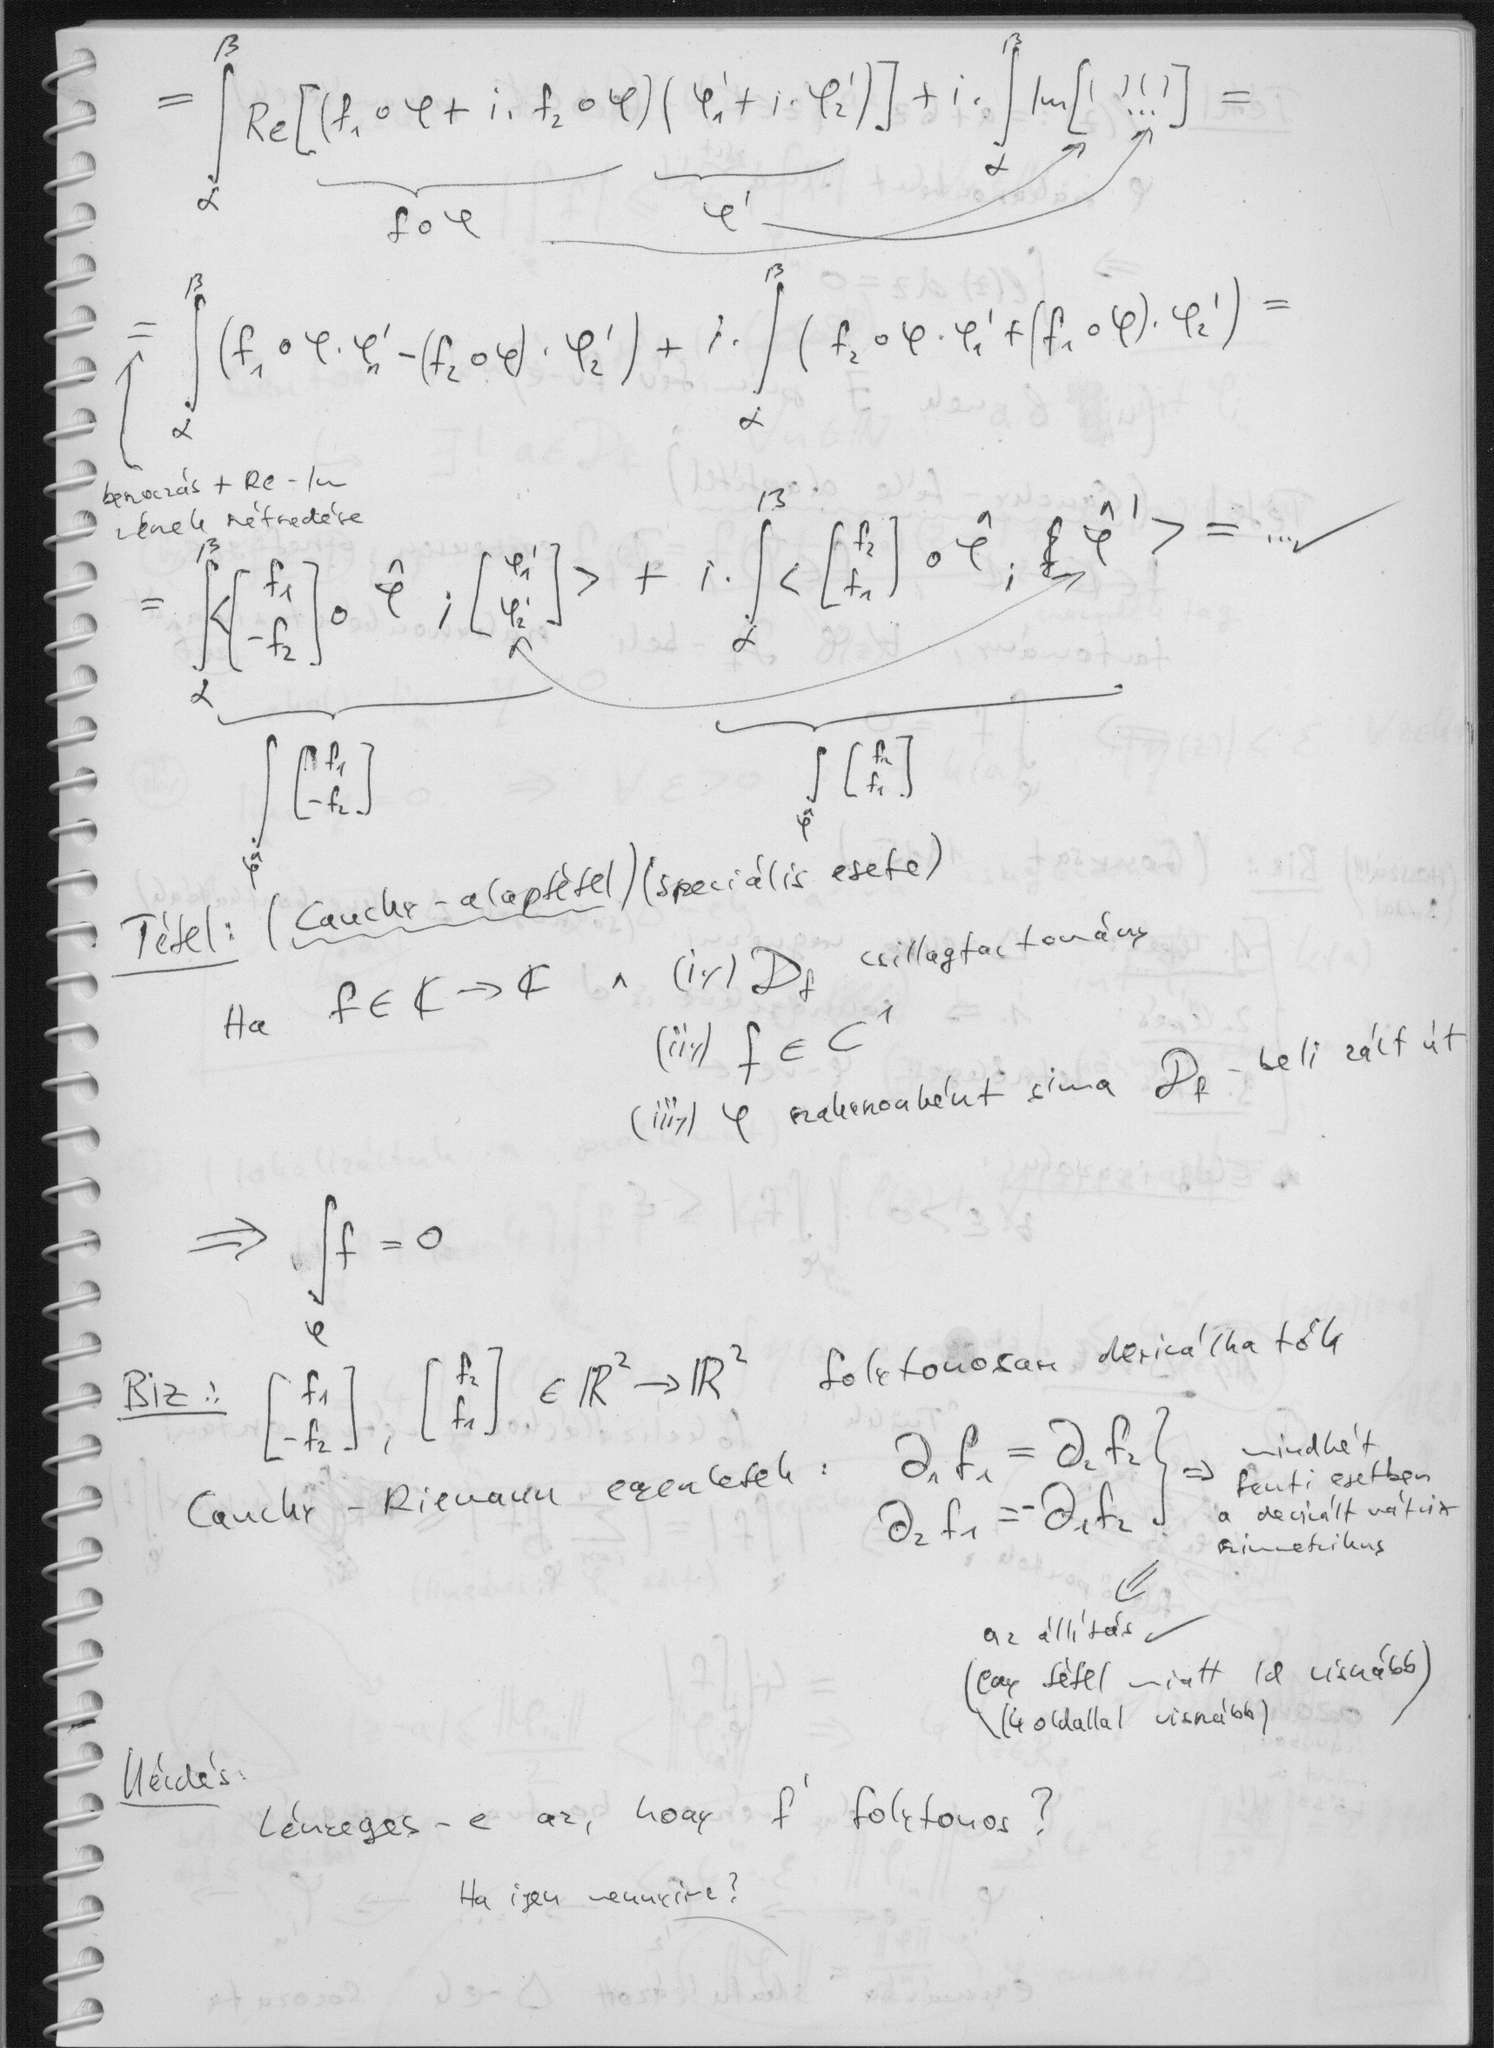 = ∫_α^β Re[(f₁∘φ + i·f₂∘φ)(φ₁' + i·φ₂')] + i·∫_α^β Im[( )( ) ...] =
f∘φ φ'
= ∫_α^β (f₁∘φ·φ₁' - (f₂∘φ)·φ₂') + i·∫_α^β (f₂∘φ·φ₁' + (f₁∘φ)·φ₂') =
beszorzás + Re - Im
részek szétszedése
= ∫_α^β <[f₁ -f₂]∘φ̂ ; [φ₁' φ₂']> + i·∫_α^β <[f₂ f₁]∘φ̂ ; φ̂'> = ... ✓
∫_φ̂ [f₁ -f₂] ∫_φ̂ [f₂ f₁]
Tétel: (Cauchy-alaptétel) (speciális esete)
Ha f ∈ ℂ → ℂ ∧ (i) D_f csillagtartomány
(ii) f ∈ C¹
(iii) φ szakaszonként sima D_f-beli zárt út
⇒ ∫_φ f = 0
Biz.: [f₁ -f₂], [f₂ f₁] ∈ ℝ² → ℝ² folytonosan deriválhatók
Cauchy-Riemann egyenletek: ∂₁f₁ = ∂₂f₂
∂₂f₁ = -∂₁f₂ } ⇒ mindkét
fenti esetben
a derivált mátrix
szimmetrikus
⇙
az állítás ✓
(egy tétel miatt ld visszább)
(4 oldallal visszább)
Kérdés:
Lényeges-e az, hogy f' folytonos?
Ha igen mennyire?